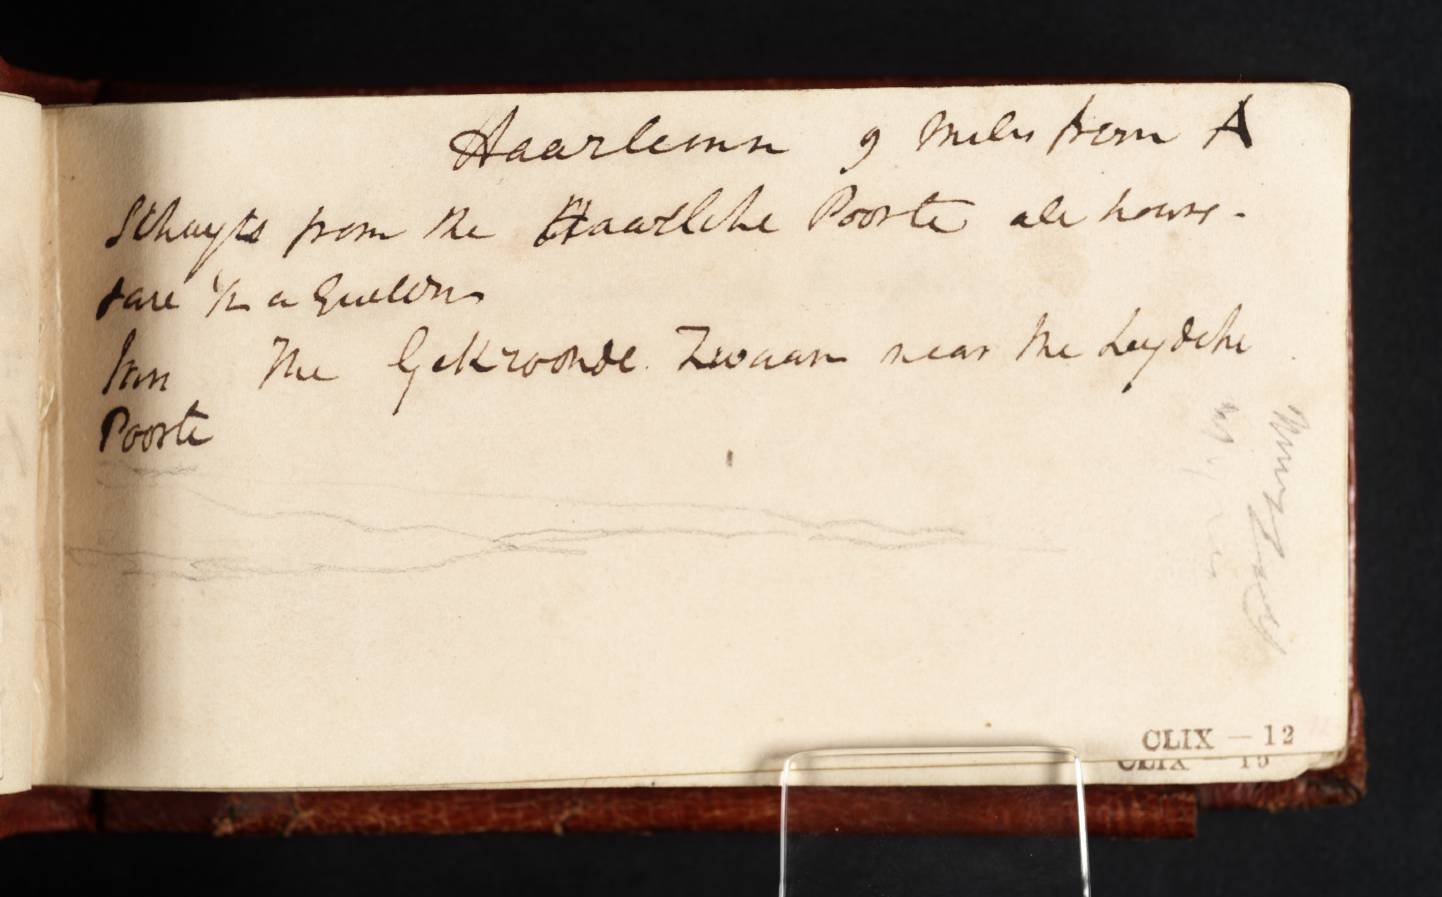 Haarlemm 9 Miles from A
Schuyts from the Haarlche Poorte all hours -
fare ½ a Guelder
Inn The Gekroonde Zwaan near the Leydche
Poorte
CLIX - 12
CLIX 15